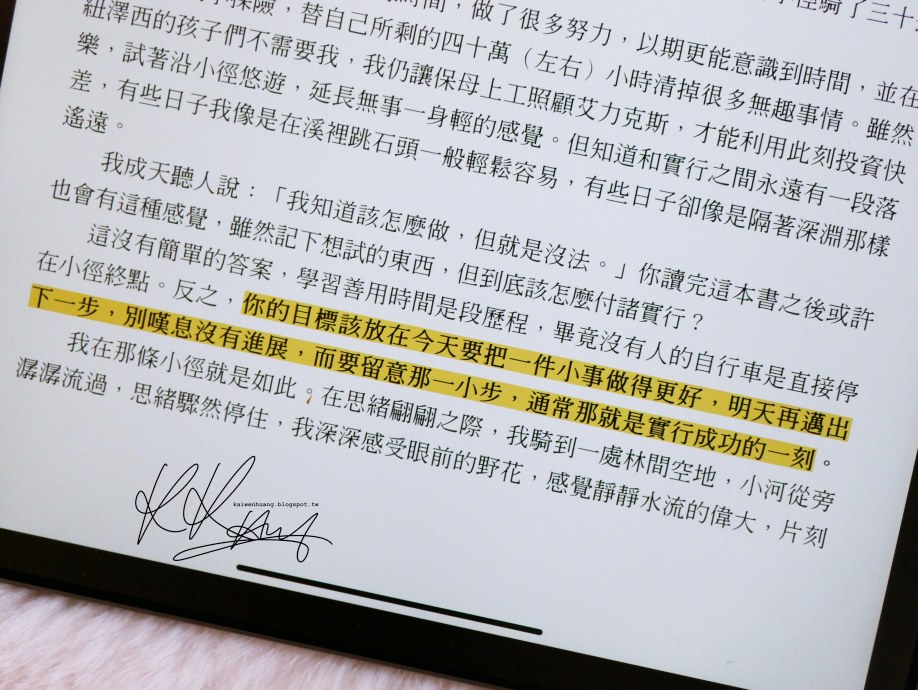 徑騎了三十
時間，做了很多努力，以期更能意識到時間，並在
探險，替自己所剩的四十萬（左右）小時清掉很多無趣事情。雖然
紐澤西的孩子們不需要我，我仍讓保母上工照顧艾力克斯，才能利用此刻投資快
樂，試著沿小徑悠遊，延長無事一身輕的感覺。但知道和實行之間永遠有一段落
差，有些日子我像是在溪裡跳石頭一般輕鬆容易，有些日子卻像是隔著深淵那樣
遙遠。
我成天聽人說：「我知道該怎麼做，但就是沒法。」你讀完這本書之後或許
也會有這種感覺，雖然記下想試的東西，但到底該怎麼付諸實行？
這沒有簡單的答案，學習善用時間是段歷程，畢竟沒有人的自行車是直接停
在小徑終點。反之，你的目標該放在今天要把一件小事做得更好，明天再邁出
下一步，別嘆息沒有進展，而要留意那一小步，通常那就是實行成功的一刻。
我在那條小徑就是如此。在思緒翩翩之際，我騎到一處林間空地，小河從旁
潺潺流過，思緒驟然停住，我深深感受眼前的野花，感覺靜靜水流的偉大，片刻
kaiwenhuang.blogspot.tw